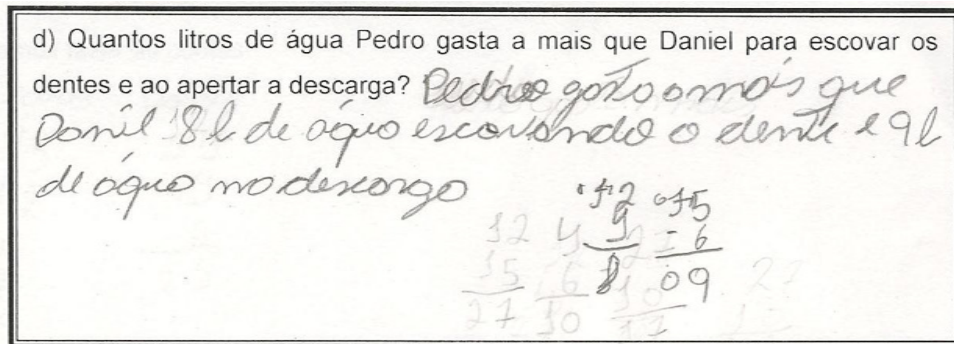 d) Quantos litros de água Pedro gasta a mais que Daniel para escovar os
dentes e ao apertar a descarga? Pedro gasto a mais que
Danil 8 l de aguo escovando o dente e 9 l
de aguo no descargo
12 15
12 4 - 6
15 6 8 09
27 10